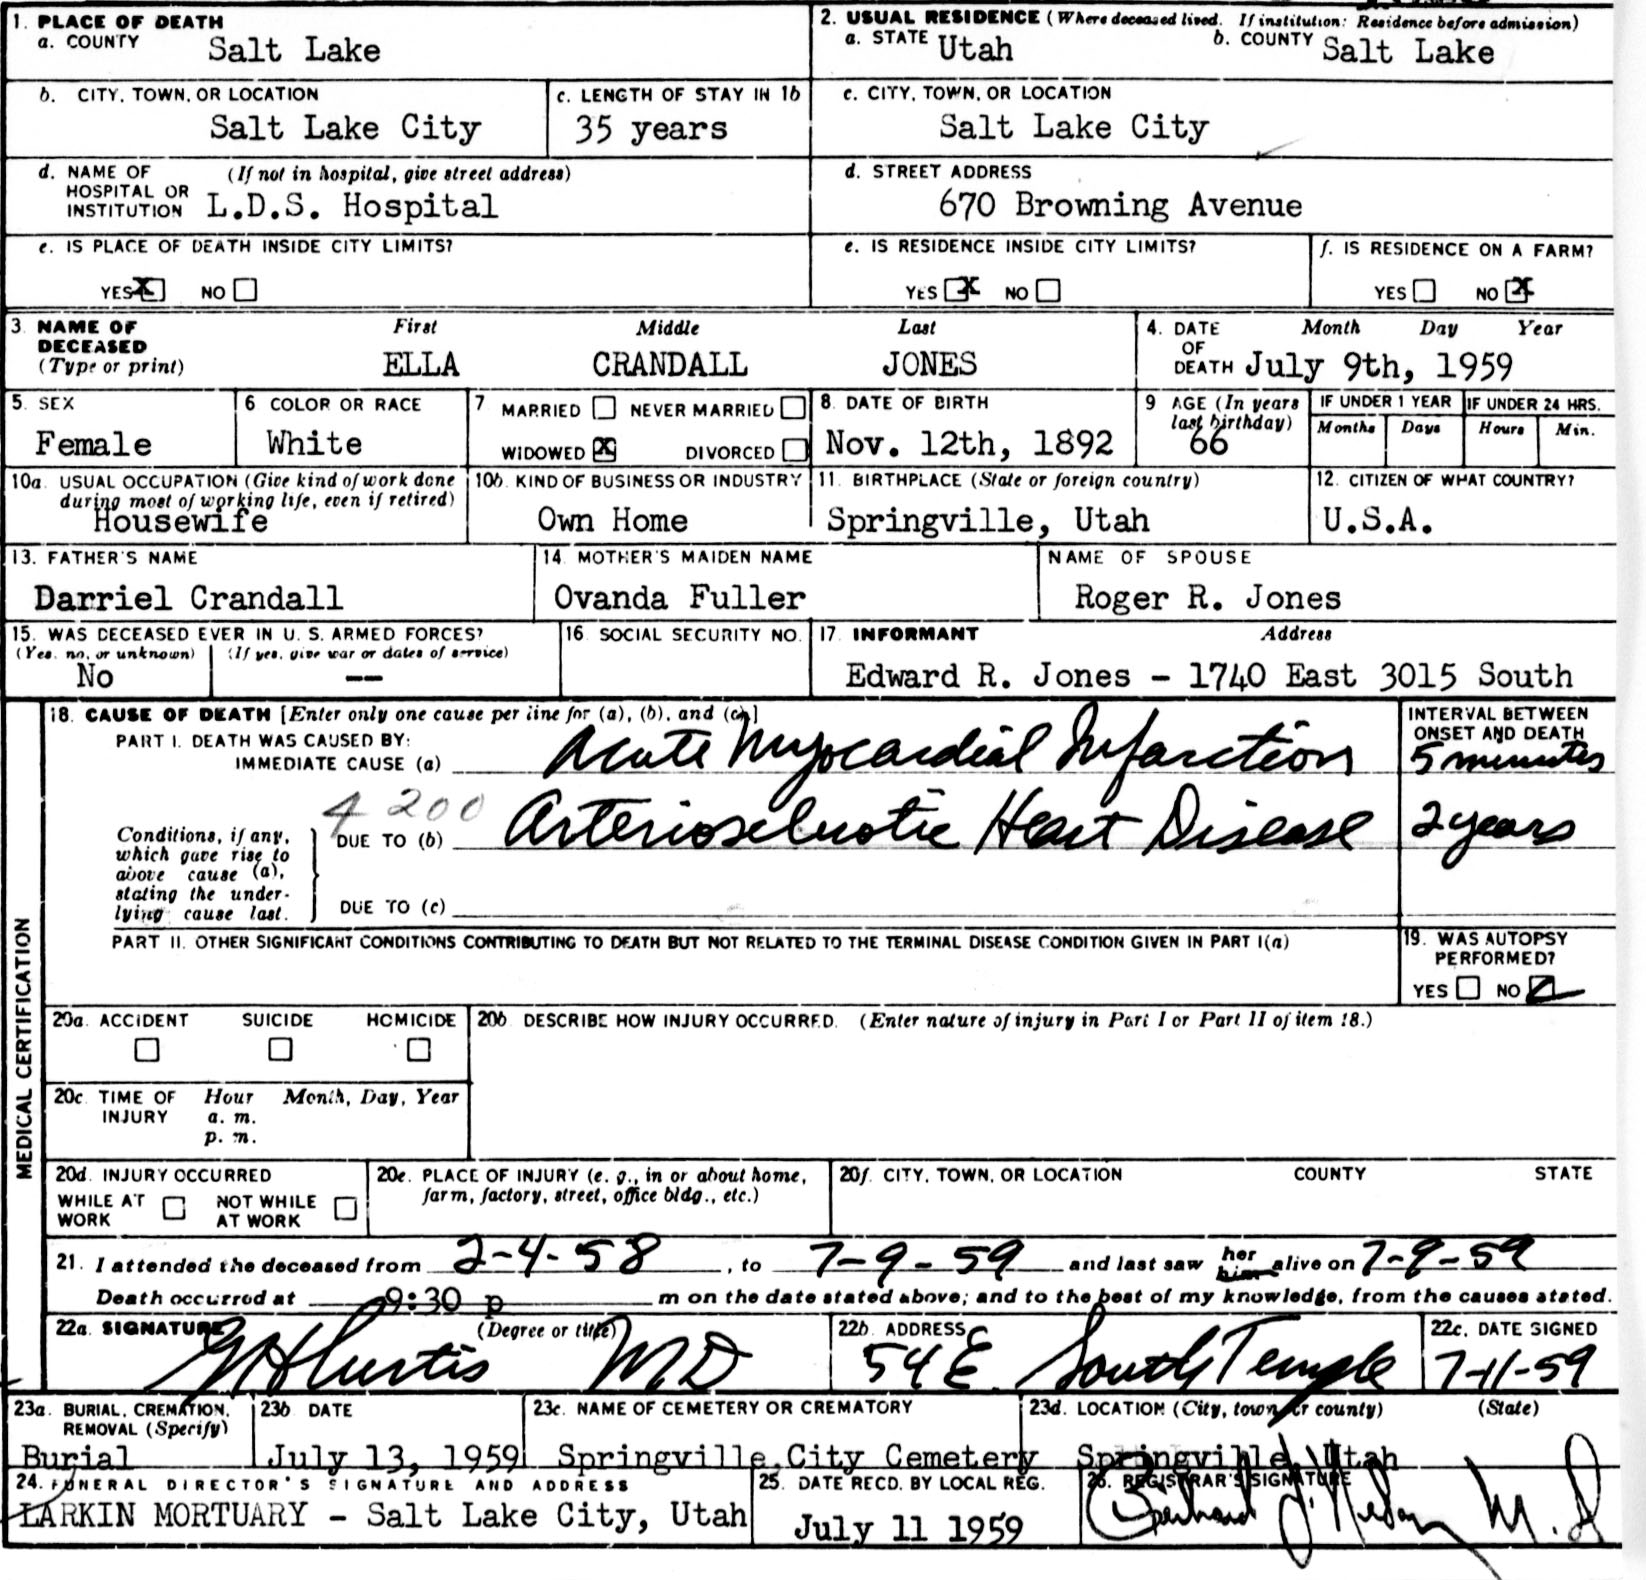 1. PLACE OF DEATH
a. COUNTY Salt Lake
2. USUAL RESIDENCE (Where deceased lived. If institution: Residence before admission)
a. STATE Utah b. COUNTY Salt Lake
b. CITY, TOWN, OR LOCATION
Salt Lake City
c. LENGTH OF STAY IN 1b
35 years
c. CITY, TOWN, OR LOCATION
Salt Lake City
d. NAME OF HOSPITAL OR INSTITUTION (If not in hospital, give street address)
L.D.S. Hospital
d. STREET ADDRESS
670 Browning Avenue
e. IS PLACE OF DEATH INSIDE CITY LIMITS?
YES X NO
e. IS RESIDENCE INSIDE CITY LIMITS?
YES X NO
f. IS RESIDENCE ON A FARM?
YES NO X
3. NAME OF DECEASED (Type or print)
First Middle Last
ELLA CRANDALL JONES
4. DATE OF DEATH Month Day Year
July 9th, 1959
5. SEX
Female
6 COLOR OR RACE
White
7 MARRIED NEVER MARRIED
WIDOWED X DIVORCED
8. DATE OF BIRTH
Nov. 12th, 1892
9 AGE (In years last birthday)
66
IF UNDER 1 YEAR
Months Days
IF UNDER 24 HRS.
Hours Min.
10a. USUAL OCCUPATION (Give kind of work done during most of working life, even if retired)
Housewife
10b. KIND OF BUSINESS OR INDUSTRY
Own Home
11. BIRTHPLACE (State or foreign country)
Springville, Utah
12. CITIZEN OF WHAT COUNTRY?
U.S.A.
13. FATHER'S NAME
Darriel Crandall
14. MOTHER'S MAIDEN NAME
Ovanda Fuller
NAME OF SPOUSE
Roger R. Jones
15. WAS DECEASED EVER IN U. S. ARMED FORCES?
(Yes, no, or unknown) (If yes, give war or dates of service)
No --
16. SOCIAL SECURITY NO.
17. INFORMANT Address
Edward R. Jones - 1740 East 3015 South
MEDICAL CERTIFICATION
18. CAUSE OF DEATH [Enter only one cause per line for (a), (b), and (c).]
PART I. DEATH WAS CAUSED BY:
IMMEDIATE CAUSE (a) Acute Myocardial Infarction
INTERVAL BETWEEN ONSET AND DEATH
5 minutes
4200
Conditions, if any, which gave rise to above cause (a), stating the underlying cause last.
DUE TO (b) Arteriosclerotic Heart Disease
2 years
DUE TO (c)
PART II. OTHER SIGNIFICANT CONDITIONS CONTRIBUTING TO DEATH BUT NOT RELATED TO THE TERMINAL DISEASE CONDITION GIVEN IN PART I(a)
19. WAS AUTOPSY PERFORMED?
YES NO
20a. ACCIDENT SUICIDE HOMICIDE
20b DESCRIBE HOW INJURY OCCURRED. (Enter nature of injury in Part I or Part II of item 18.)
20c. TIME OF INJURY Hour Month, Day, Year
a. m.
p. m.
20d. INJURY OCCURRED
WHILE AT WORK NOT WHILE AT WORK
20e. PLACE OF INJURY (e. g., in or about home, farm, factory, street, office bldg., etc.)
20f. CITY, TOWN, OR LOCATION COUNTY STATE
21. I attended the deceased from 2-4-58, to 7-9-59 and last saw her him alive on 7-9-59
Death occurred at 9:30 p m on the date stated above; and to the best of my knowledge, from the causes stated.
22a. SIGNATURE (Degree or title)
Curtis MD
22b. ADDRESS
54 E. South Temple
22c. DATE SIGNED
7-11-59
23a. BURIAL, CREMATION, REMOVAL (Specify)
Burial
23b DATE
July 13, 1959
23c. NAME OF CEMETERY OR CREMATORY
Springville City Cemetery
23d. LOCATION (City, town, or county) (State)
Springville, Utah
24. FUNERAL DIRECTOR'S SIGNATURE AND ADDRESS
LARKIN MORTUARY - Salt Lake City, Utah
25. DATE RECD. BY LOCAL REG.
July 11 1959
26. REGISTRAR'S SIGNATURE